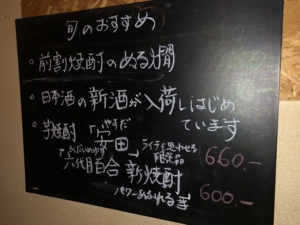 旬のおすすめ
○前割焼酎のぬる燗
○日本酒の新酒が入荷しはじめ
ています
○芋焼酎「安田」
やすだ
ライチを思わせる
限定品
660.-
六代目百合 新焼酎
600.-
パワーあふれる